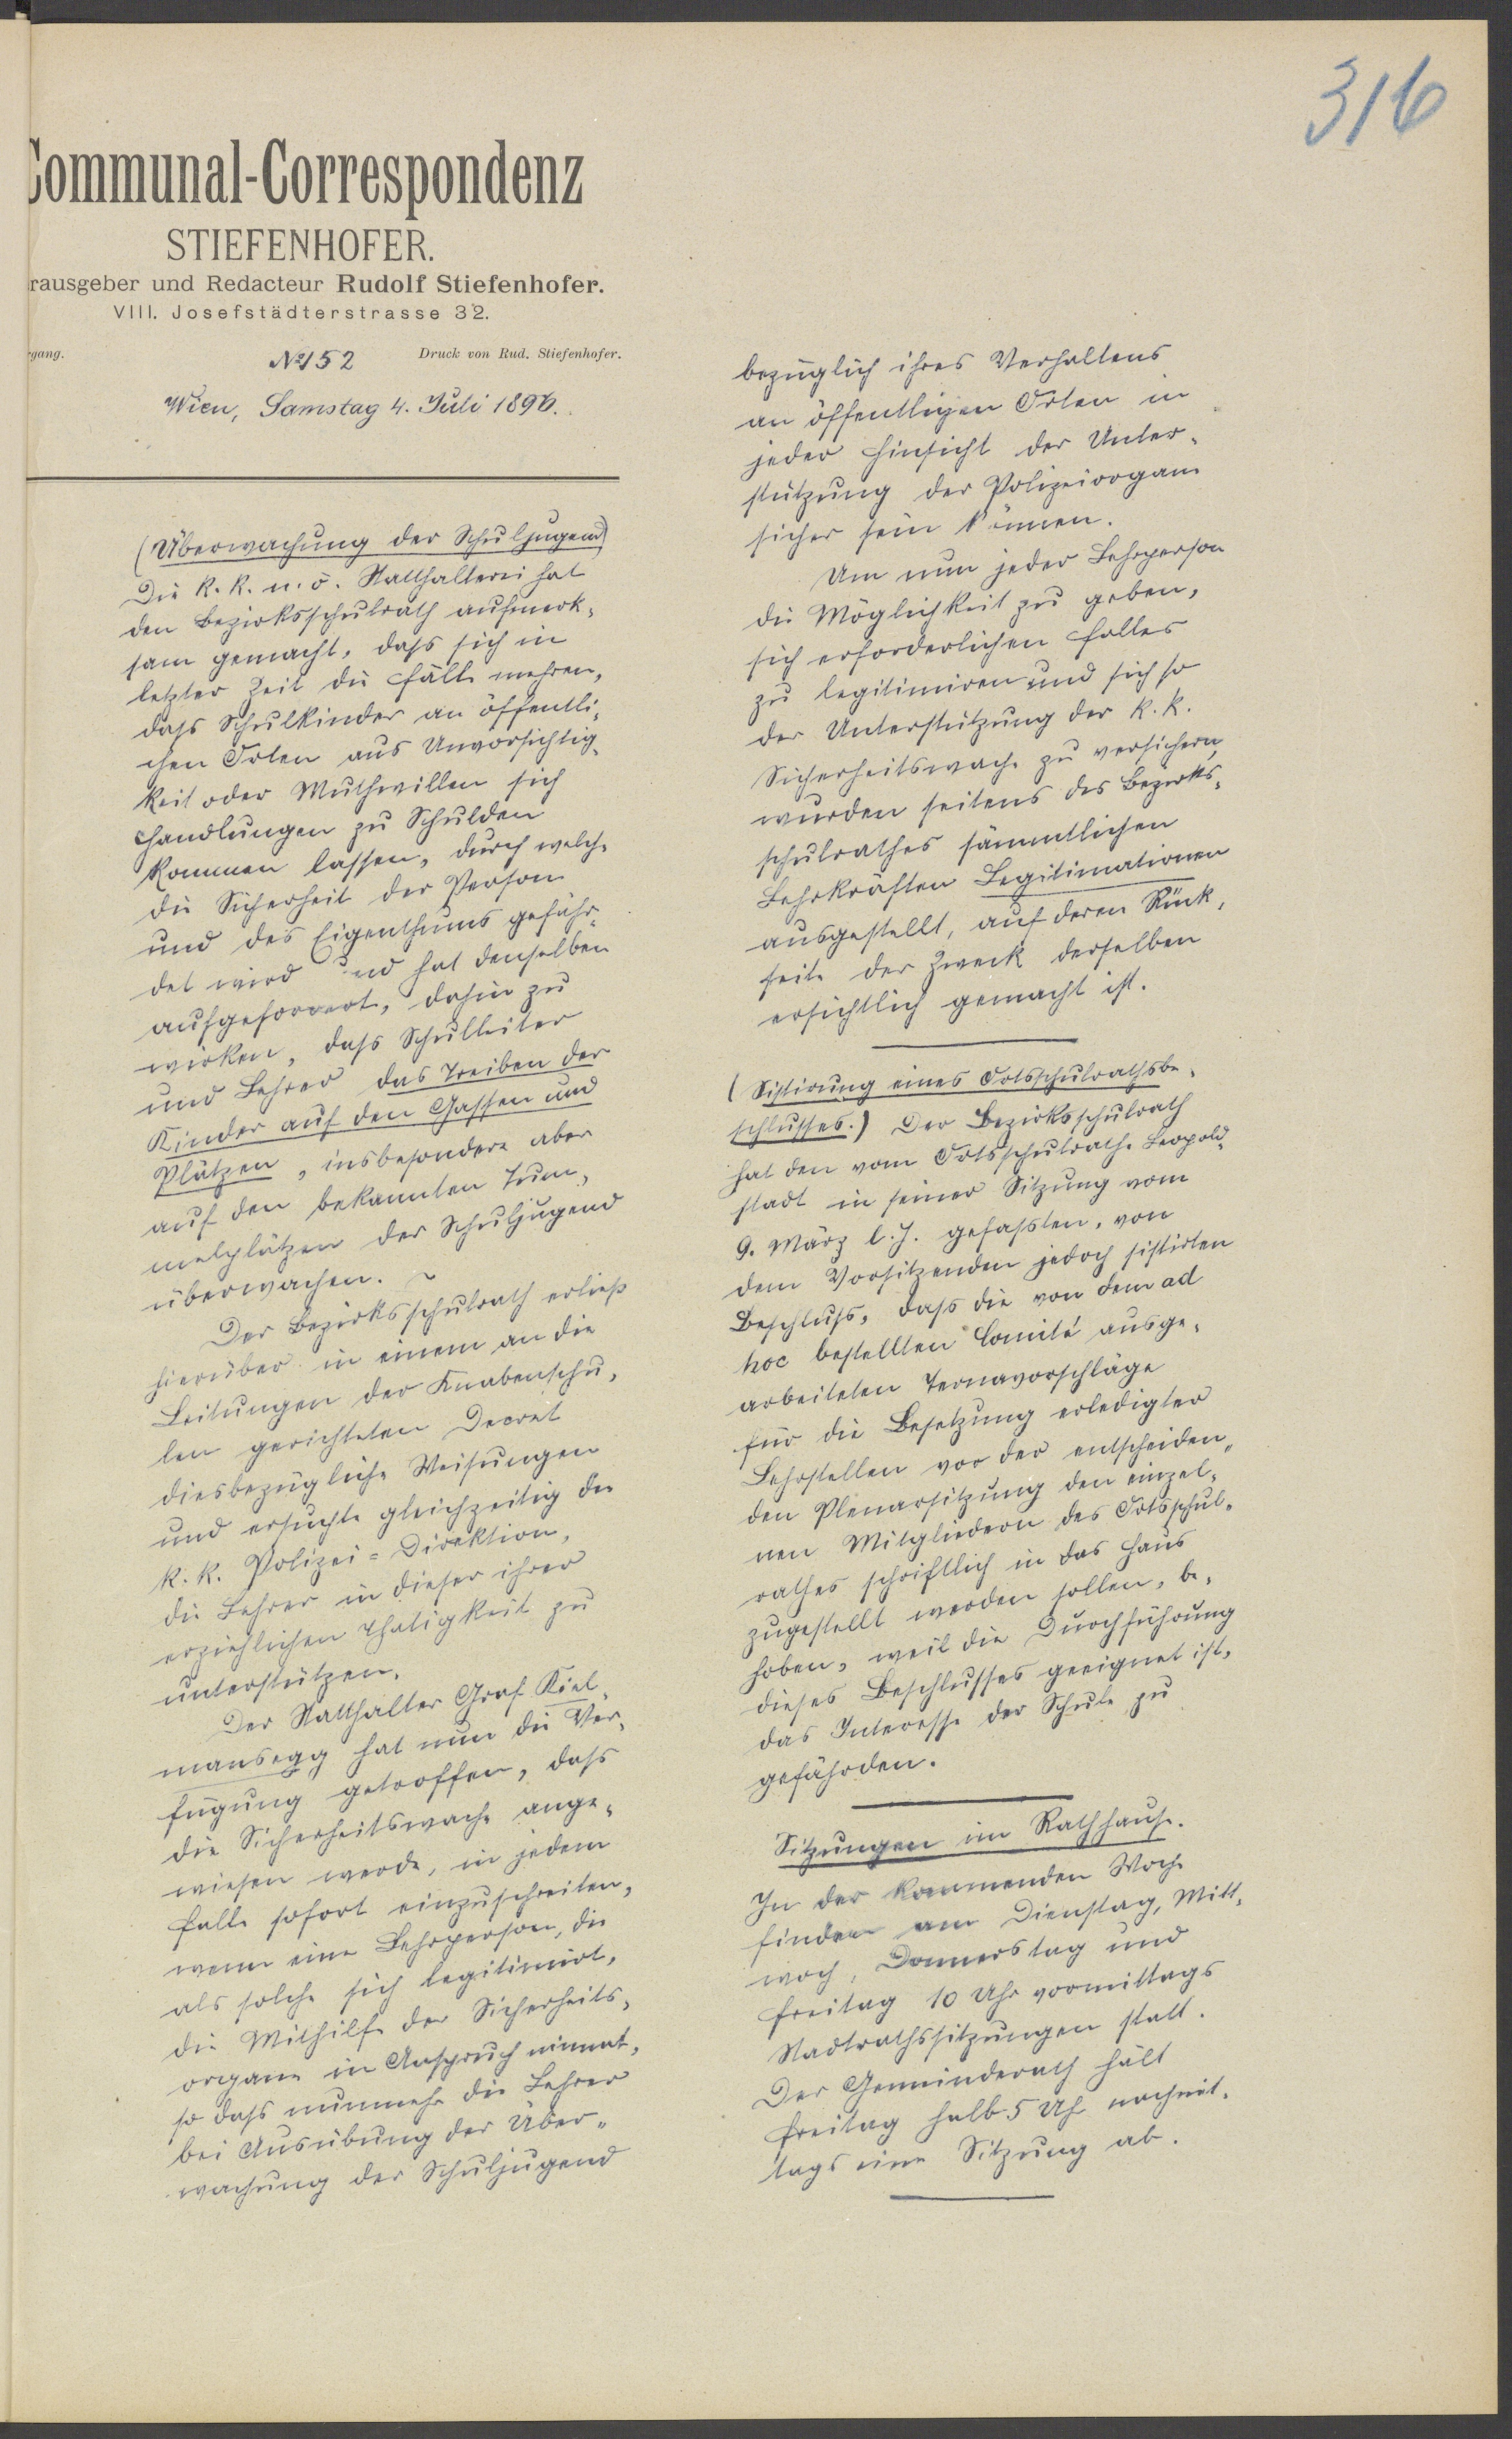 316
Communal-Correspondenz
STIEFENHOFER.
rausgeber und Redacteur Rudolf Stiefenhofer.
VIII. Josefstädterstrasse 32.
rgang. № 152 Druck von Rud. Stiefenhofer.
Wien, Samstag 4. Juli 1896.
(Überwachung der Schuljugend)
Die k. k. n. ö. Statthalterei hat
den Bezirksschulrath aufmerk-
sam gemacht, dass sich in
letzter Zeit die Fälle mehren,
dass Schulkinder an öffentli-
chen Orten aus Unvorsichtig-
keit oder Muthwillen sich
Handlungen zu Schulden
kommen lassen, durch welche
die Sicherheit der Person
und des Eigenthums gefähr-
det wird und hat denselben
aufgefordert, dahin zu
wirken, dass Schulleiter
und Lehrer das Treiben der
Kinder auf den Gassen und
Plätzen, insbesondere aber
auf den bekannten Tum-
melplätzen der Schuljugend
überwachen. ~
Der Bezirksschulrath erließ
hierüber in einem an die
Leitungen der Knabenschu-
len gerichteten Decret
diesbezügliche Weisungen
und ersuchte gleichzeitig die
k. k. Polizei-Direktion,
die Lehrer in dieser ihrer
erziehlichen Thätigkeit zu
unterstützen.
Der Statthalter Graf Kiel-
mansegg hat nun die Ver-
fügung getroffen, dass
die Sicherheitswache ange-
wiesen werde, in jedem
Falle sofort einzuschreiten,
wenn eine Lehrperson, die
als solche sich legitimirt,
die Mithilfe der Sicherheits-
organe in Anspruch nimmt,
so dass nunmehr die Lehrer
bei Ausübung der Über-
wachung der Schuljugend
bezüglich ihres Verhaltens
an öffentlichen Orten in
jeder Hinsicht der Unter-
stützung der Polizeiorgane
sicher sein können.
Um nun jeder Lehrperson
die Möglichkeit zu geben,
sich erforderlichen Falles
zu legitimiren und sich so
der Unterstützung der k. k.
Sicherheitswache zu versichern,
wurden seitens des Bezirks-
schulrathes sämmtlichen
Lehrkräften Legitimationen
ausgestellt, auf deren Rück-
seite der Zweck derselben
ersichtlich gemacht ist.
(Sistirung eines Ortsschulrathsbe-
schlusses.) Der Bezirksschulrath
hat den vom Ortsschulrathe Leopold-
stadt in seiner Sitzung vom
9. März l. J. gefassten, von
dem Vorsitzenden jedoch sistirten
Beschluss, dass die von dem ad
hoc bestellten Comité ausge-
arbeiteten Ternavorschläge
für die Besetzung erledigter
Lehrstellen vor der entscheiden-
den Plenarsitzung den einzel-
nen Mitgliedern des Ortsschul-
rathes schriftlich in das Haus
zugestellt werden sollen, be-
hoben, weil die Durchführung
dieses Beschlusses geeignet ist,
das Interesse der Schule zu
gefährden.
Sitzungen im Rathhause.
In der kommenden Woche
finden am Dienstag, Mitt-
woch, Donnerstag und
Freitag 10 Uhr vormittags
Stadtrathssitzungen statt.
Der Gemeinderath hält
Freitag halb 5 Uhr nachmit-
tags eine Sitzung ab.